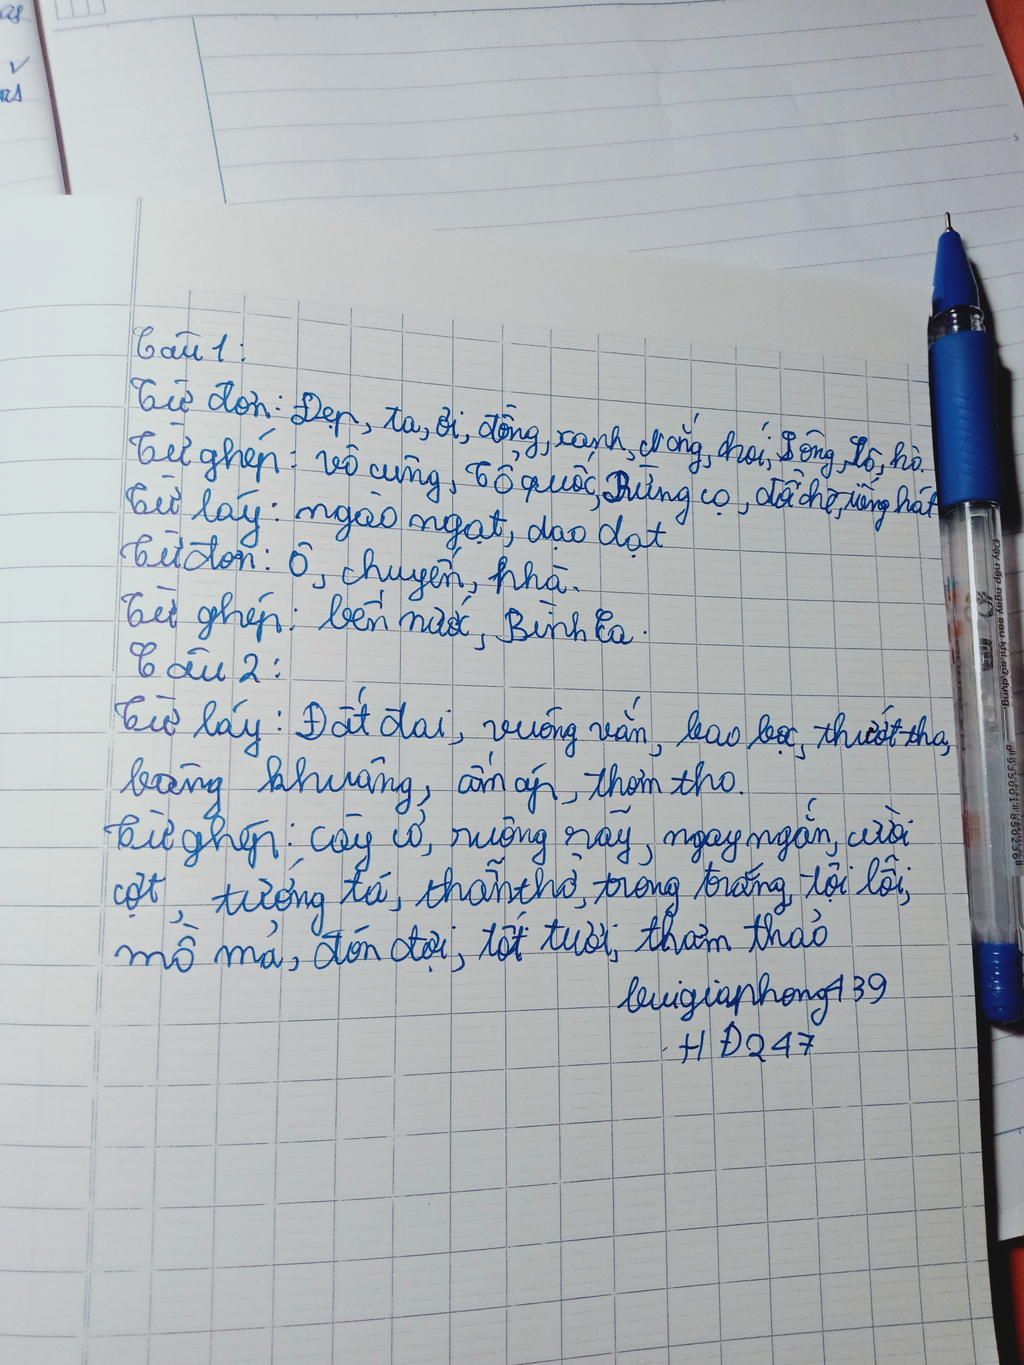 as
✓
as
Câu 1:
Từ đơn: Đẹp, ta, ơi, đồng, xanh, nắng, chói, Sông, Lô, hò.
Từ ghép: vô cùng, Tổ quốc, Rừng cọ, đồi chè, tiếng hát
Từ láy: ngào ngạt, dạo dạt
Từ đơn: Ô, chuyến, phà.
Từ ghép: bến nước, Bình Ca.
Câu 2:
Từ láy: Đất đai, vuông vắn, bao bọc, thướt tha,
bâng khuâng, ấm áp, thơm tho.
Từ ghép: Cây cỏ, ruộng rẫy, ngay ngắn, cười
cợt, tướng tá, thẩn thơ, trong trắng, lội lỗi,
mồ mả, đón đợi, tốt tươi, thơm thảo
buigiaphong439
HĐ247